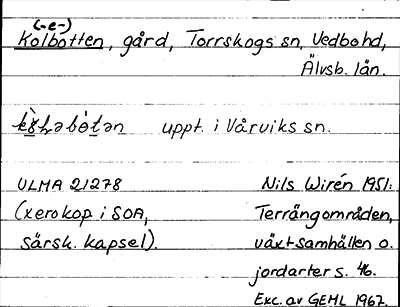 (-e-)
Kolbotten, gård, Torrskogs sn, Vedbohd,
Älvsb. län.
uppt. i Vårviks sn.
ULMA 21278
(xerokop i SOA,
särsk. kapsel).
Nils Wirén 1951:
Terrängområden,
växtsamhällen o.
jordarter s. 46.
Exc. av GEHL 1967.